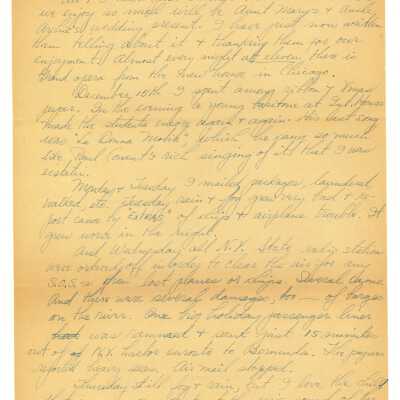 we enjoy so much will be Aunt Mary's + Uncle
wedding present. I have just now written
them telling about it + thanking them for our
enjoyment. Almost every night at eleven there is
Grand opera from the new house in Chicago.
December 15th I spent among ribbon + Xmas
paper. In the evening a young baritone at Int. House
made the students encore again + again. His best song
was "La Donna Mobile" which he sang so much
like Paul rich singing of it that I was
ecstatic.
Monday + Tuesday I mailed packages, laundered,
walked, etc. Tuesday rain + fog grew very bad + re-
port came by "Extras" of ships + airplane trouble. It
grew worse in the night.
And Wednesday all N.Y. State radio stations
were ordered off in order to clear the air for any
S.O.S.'s from lost planes or ships. Several came.
And there were several damages, too — of barges
on the river. One big holiday passenger liner
was rammed + sank just 15 minutes
out of N.Y. harbor enroute to Bermuda. The papers
reported heavy seas. Air mail stopped.
Thursday still fog + rain, but I love the